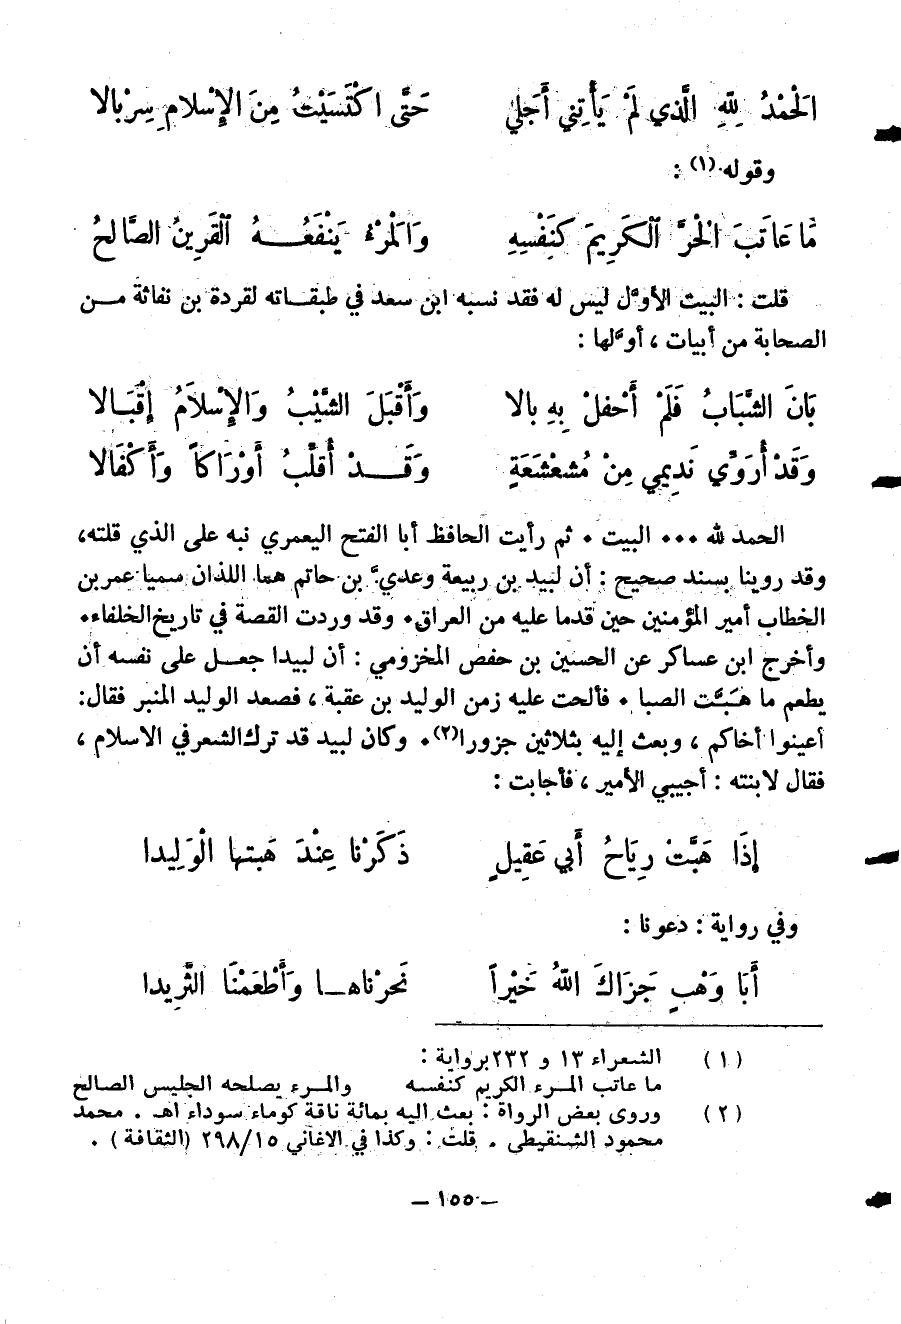 الْحَمْدُ لِلّهِ الَّذي لَمْ يَأْتِني أَجَلي حَتَّى اكْتَسَيْتُ مِنَ الإِسْلامِ سِرْبالا
وقوله (١) :
مَا عَاتَبَ الْحُرَّ الْكَرِيمَ كَنَفْسِهِ وَالْمَرْءُ يَنْفَعُــهُ الْقَرِينُ الصَّالحُ
قلت : البيت الأوَّل ليس له فقد نسبه ابن سعد في طبقـاته لقردة بن نفاثة مـن
الصحابة من أبيات ، أوَّلها :
بَانَ الشَّبَابُ فَلَمْ أَحْفلْ بِهِ بالا وَأَقْبَلَ الشَّيْبُ وَالإِسْلَامُ إقْبَـالا
وَقَدْ أُرَوِّي نَدِيمِي مِنْ مُشَعْشَعَةٍ وَقَــدْ أُقَلِّبُ أَوْرَاكاً وَأَكْفَالا
الحمد لله ٠٠٠ البيت ٠ ثم رأيت الحافظ أبا الفتح اليعمري نبه على الذي قلته،
وقد روينا بسند صحيح : أن لبيد بن ربيعة وعديّ بن حاتم هما اللذان سميا عمر بن
الخطاب أمير المؤمنين حين قدما عليه من العراق٠ وقد وردت القصة في تاريخ الخلفاء٠
وأخرج ابن عساكر عن الحسين بن حفص المخزومي : أن لبيدا جعـل على نفسه أن
يطعم ما هبَّت الصبا ٠ فألحت عليه زمن الوليد بن عقبة ، فصعد الوليد المنبر فقال:
أعينوا أخاكم ، وبعث إليه بثلاثين جزورا(٢)٠ وكان لبيد قد ترك الشعر في الاسلام ،
فقال لابنته : أجيبي الأمير ، فأجابت :
إِذَا هَبَّتْ رِيَاحُ أَبي عَقِيلٍ ذَكَرْنا عِنْدَ هَبتها الْوَلِيدا
وفي رواية : دعونا :
أَبَا وَهْبٍ جَزَاكَ اللهُ خَيْراً نَحرْناهـا وَأَطْعَمْنَا الثَّرِيدا
(١) الشعراء ١٣ و ٢٣٢ برواية :
ما عاتب المرء الكريم كنفسه والمرء يصلحه الجليس الصالح
(٢) وروى بعض الرواة : بعث اليه بمائة ناقة كوماء سوداء اهـ . محمد
محمود الشنقيطي . قلت : وكذا في الاغاني ٢٩٨/١٥ (الثقافة) .
– ١٥٥ –